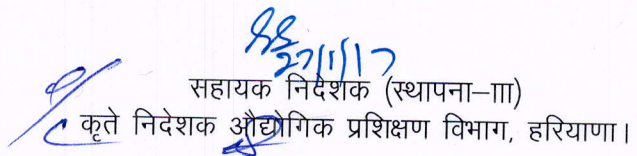 27/1/17
सहायक निदेशक (स्थापना–III)
कृते निदेशक औद्योगिक प्रशिक्षण विभाग, हरियाणा।